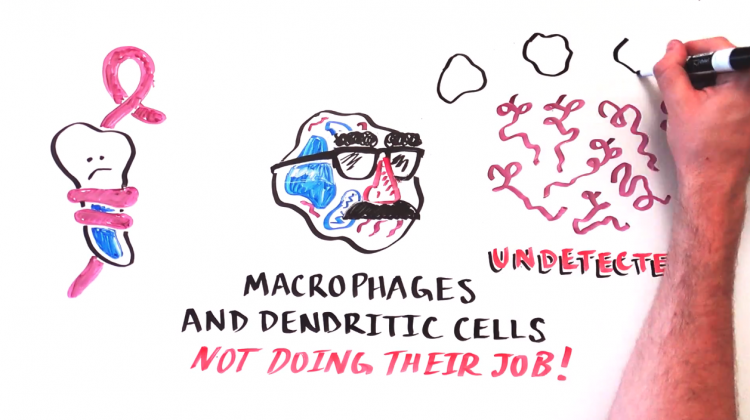 UNDETECTE
MACROPHAGES
AND DENDRITIC CELLS
NOT DOING THEIR JOB!